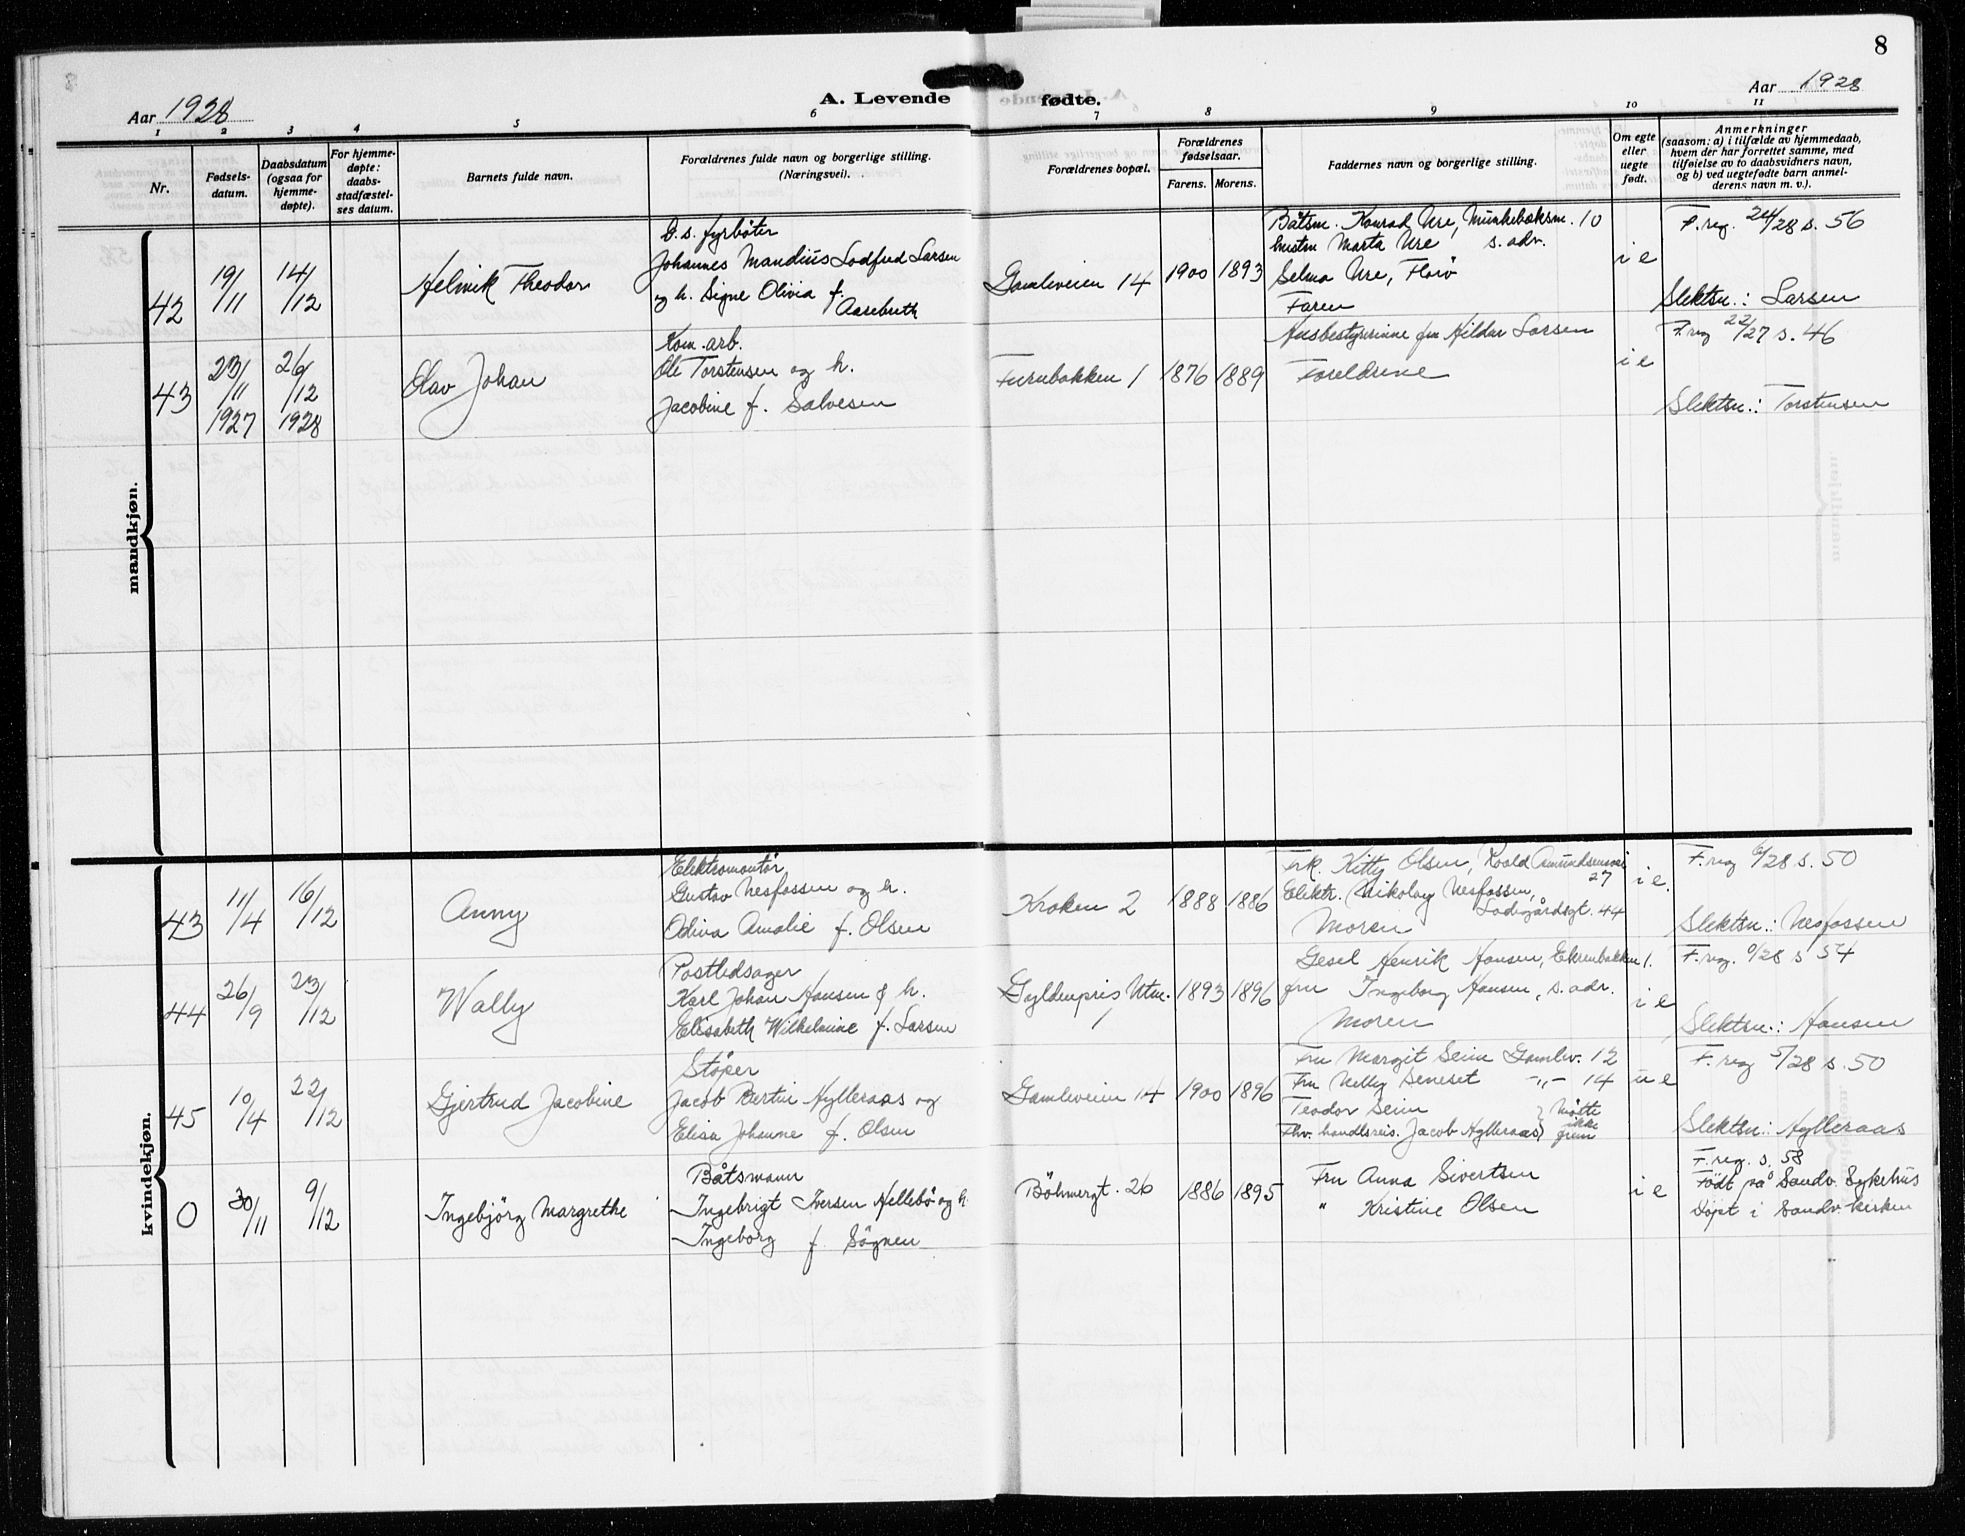 8
Aar 1928
A. Levende fødte.
Aar 1928
1 2 3 4 5 6 7 8 9 10 11
Nr.
Fødsels-
datum.
Daabsdatum
(ogsaa for
hjemme-
døpte).
For hjemme-
døpte:
daabs-
stadfæstel-
ses datum.
Barnets fulde navn.
Forældrenes fulde navn og borgerlige stilling.
(Næringsvei).
Forældrenes bopæl.
Forældrenes
fødselsaar.
Farens. Morens.
Faddernes navn og borgerlige stilling.
Om egte
eller
uegte
født.
Anmerkninger
(saasom: a) i tilfælde av hjemmedaab,
hvem der har forrettet samme, med
tilføielse av to daabsvidners navn,
og b) ved uegtefødte barn anmel-
derens navn m. v.).
mandkjøn.
42
19/11
14/12
Helmik Theodor
D.s. fyrbøter
Johannes Mandius Lodfred Larsen
og h. Signe Olivia f.
Aarebroth
Gamleveien 14
1900 1893
Båtsm. Konrad Ure, Munkebøksm. 10
hustru Marta Ure s. adr.
Selma Ure, Florö
Faren
Husbestyrerinne fru Hildur Larsen
i e
F. reg. 24/28 s. 56
Slektsn.: Larsen
43
23/11
1927
26/12
1928
Olav Johan
Kom. arb.
Ole Torstensen og h.
Jacobine f. Salvesen
Furubakken 1
1876 1889
Foreldrene
i e
F. reg 22/27 s. 46
Slektsn.: Torstensen
kvindekjøn.
43
11/4
16/12
Anny
Elektromontör
Gustav Nesfossen og h.
Odina Amalie f. Olsen
Kroken 2
1888 1886
Frk. Kitty Olsen, Roald Amundsensvei
27
Elektr. Nikolay Nesfossen,
Ladegårdsgt. 44
Moren
i e.
F. reg 6/28 s. 50
Slektsn.: Nesfossen
44
26/9
23/12
Wally
Postledsager
Karl Johan Hansen & h.
Elisabeth Wilhelmine f. Larsen
Gyldenpris Utm.
1
1893 1896
Gesel Henrik Hansen, Ekrenbakken 1.
fru Ingeborg Hansen, s. adr.
Moren
i e
F. reg. 0/28 s 54
Slektsn.: Hansen
45
10/4
22/12
Gjertrud Jacobine
Støper
Jacob Bertin Hylleraas og
Elisa Johanne f. Olsen
Gamleveien 14
1900 1896
Fru Margit Seim Gamlev. 12
Fru Nelly Seneset -„- 14
Teodor Seim
Fhv. handlsreis. Jacob Hylleraas } møtte
ikke
frem
u e
F. reg 5/28 s. 50
Slektsn.: Hylleraas
0
30/11
9/12
Ingebjörg Margrethe
Båtsmann
Ingebrigt Iversen Hellebö og h.
Ingeborg f. Søgnen
Böhmergt. 26
1886 1895
Fru Anna Sivertsen
" Kristine Olsen
i e
F. reg. s. 58
Födt på Sandv. Sykehus
Döpt i Sandv. kirken